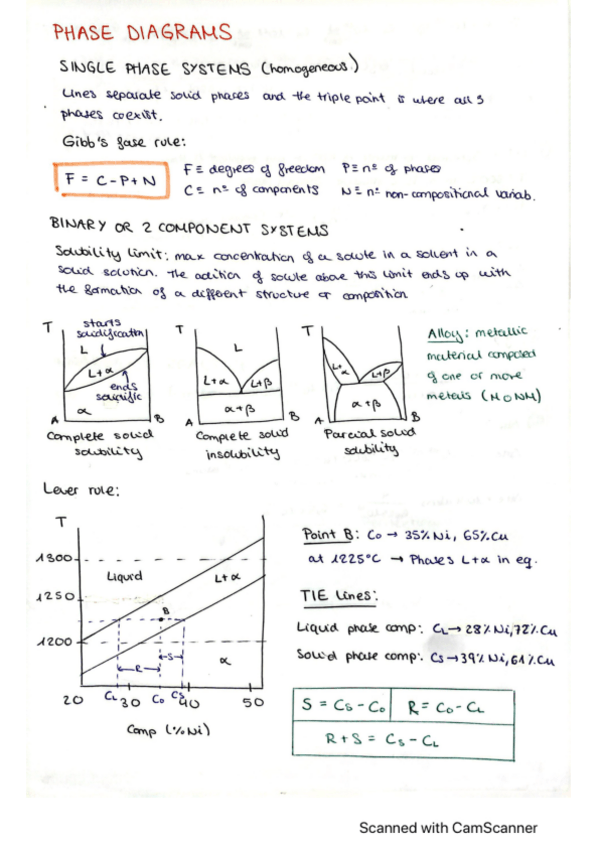 PHASE DIAGRAMS
SINGLE PHASE SYSTEMS (homogeneous)
Lines separate solid phases and the triple point is where all 3
phases coexist.
Gibb's fase rule:
F = C - P + N
F ≡ degrees of freedom P ≡ nº of phases
C ≡ nº of components N ≡ nº non-compositional variab.
BINARY OR 2 COMPONENT SYSTEMS
Solubility limit: max concentration of a solute in a solvent in a
solid solution. The adition of solute above this limit ends up with
the formation of a different structure or composition
T
starts
solidification
L
L+α
ends
α
A
B
Complete solid
solubility
T
L
L+α
L+β
α+β
A
B
Complete solid
insolubility
T
L+α
L+β
α+β
A
B
Parcial solid
solubility
Alloy: metallic
material composed
of one or more
metals (M o NM)
Lever rule:
T
1300
1250
1200
Liquid
L+α
B
S
R
α
20
CL
30
Co
Cs
40
50
Comp (%Ni)
Point B: Co → 35%Ni, 65%Cu
at 1225°C → Phases L+α in eq.
TIE lines:
Liquid phase comp: CL → 28%Ni, 72%Cu
Solid phase comp: Cs → 39%Ni, 61%Cu
S = Cs - Co
R = Co - CL
R + S = Cs - CL
Scanned with CamScanner